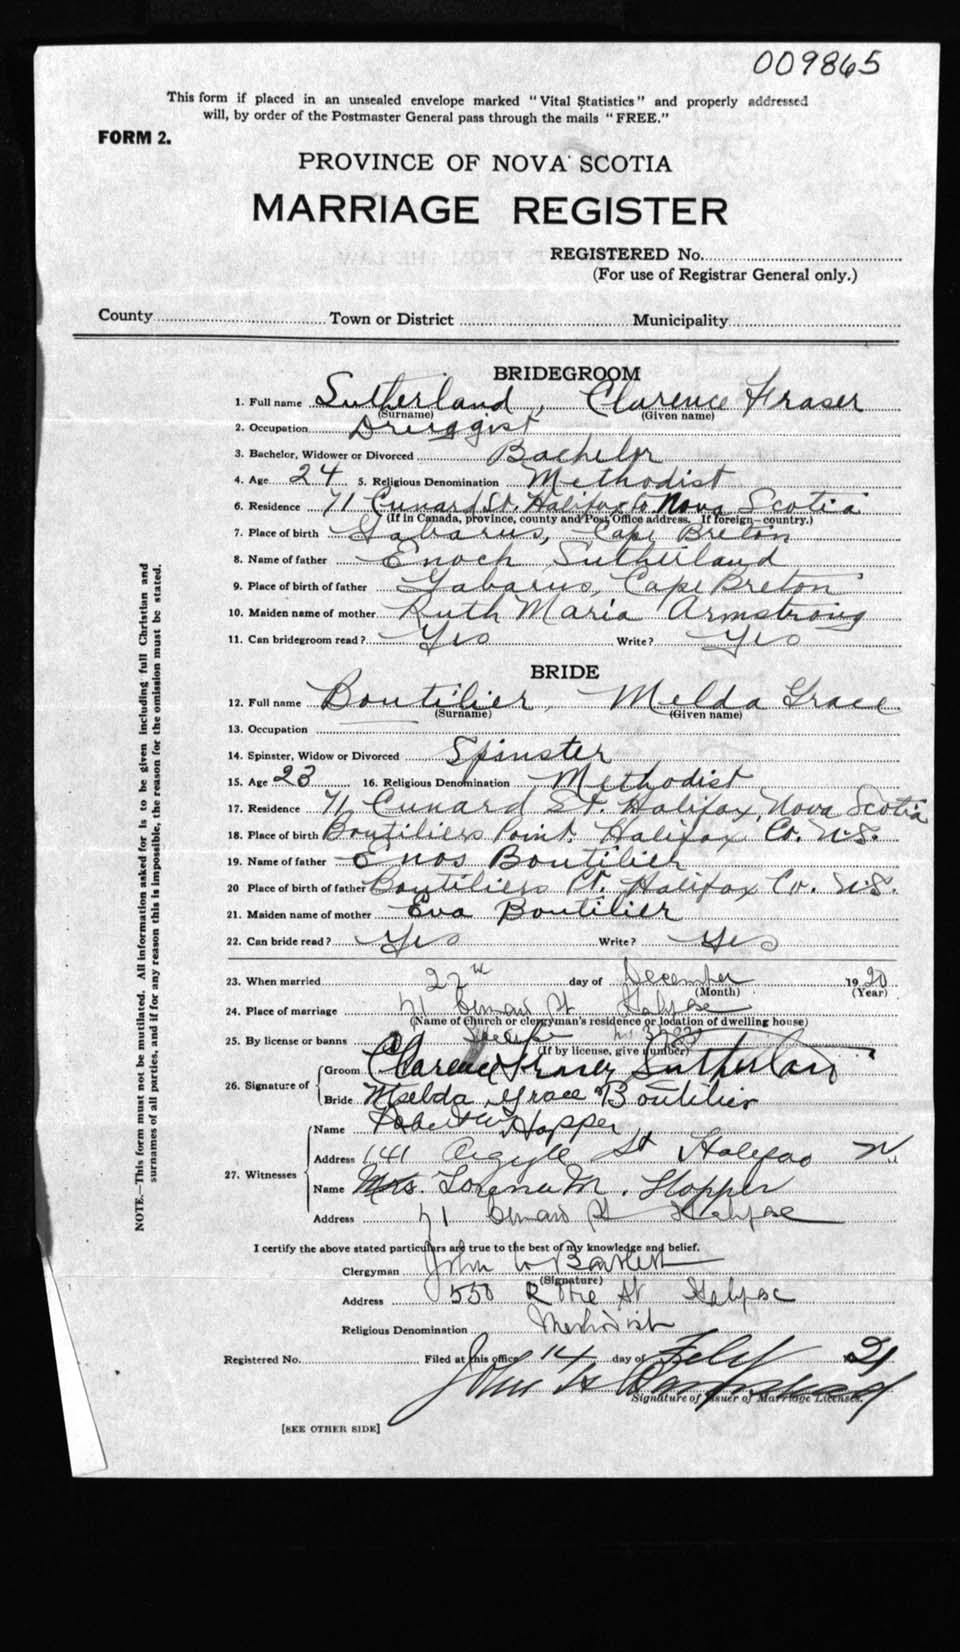 009865
This form if placed in an unsealed envelope marked "Vital Statistics" and properly addressed
will, by order of the Postmaster General pass through the mails "FREE."
FORM 2.
PROVINCE OF NOVA SCOTIA
MARRIAGE REGISTER
REGISTERED No.
(For use of Registrar General only.)
County Town or District Municipality
BRIDEGROOM
1. Full name Sutherland, Clarence Fraser
(Surname) (Given name)
2. Occupation Druggist
3. Bachelor, Widower or Divorced Bachelor
4. Age 24 5. Religious Denomination Methodist
6. Residence 71 Cunard St. Halifax Nova Scotia
(If in Canada, province, county and Post Office address. If foreign—country.)
7. Place of birth Gabarus, Cape Breton
8. Name of father Enoch Sutherland
9. Place of birth of father Gabarus, Cape Breton
10. Maiden name of mother Ruth Maria Armstrong
11. Can bridegroom read? Yes Write? Yes
BRIDE
12. Full name Boutilier, Melda Grace
(Surname) (Given name)
13. Occupation
14. Spinster, Widow or Divorced Spinster
15. Age 23 16. Religious Denomination Methodist
17. Residence 71 Cunard St. Halifax, Nova Scotia
18. Place of birth Boutiliers Point. Halifax Co. N.S.
19. Name of father Enos Boutilier
20 Place of birth of father Boutiliers Pt. Halifax Co. N.S.
21. Maiden name of mother Eva Boutilier
22. Can bride read? Yes Write? Yes
23. When married 22 day of December 1920
(Month) (Year)
24. Place of marriage 71 Cunard St Halifax
(Name of church or clergyman's residence or location of dwelling house)
25. By license or banns
(If by license, give number)
26. Signature of
Groom Clarence Fraser Sutherland
Bride Melda Grace Boutilier
27. Witnesses
Name Robert W Hopper
Address 141 Argyle St Halifax N
Name Mrs. Lorena M. Hopper
Address 71 Cunard St Halifax
I certify the above stated particulars are true to the best of my knowledge and belief.
Clergyman John W Bartlett
(Signature)
Address 550 Robie St Halifax
Religious Denomination Methodist
Registered No. Filed at this office 14 day of Feby 21
John
Signature of Issuer of Marriage Licenses.
[SEE OTHER SIDE]
NOTE.—This form must not be mutilated. All information asked for is to be given including full Christian and
surnames of all parties, and if for any reason this is impossible, the reason for the omission must be stated.